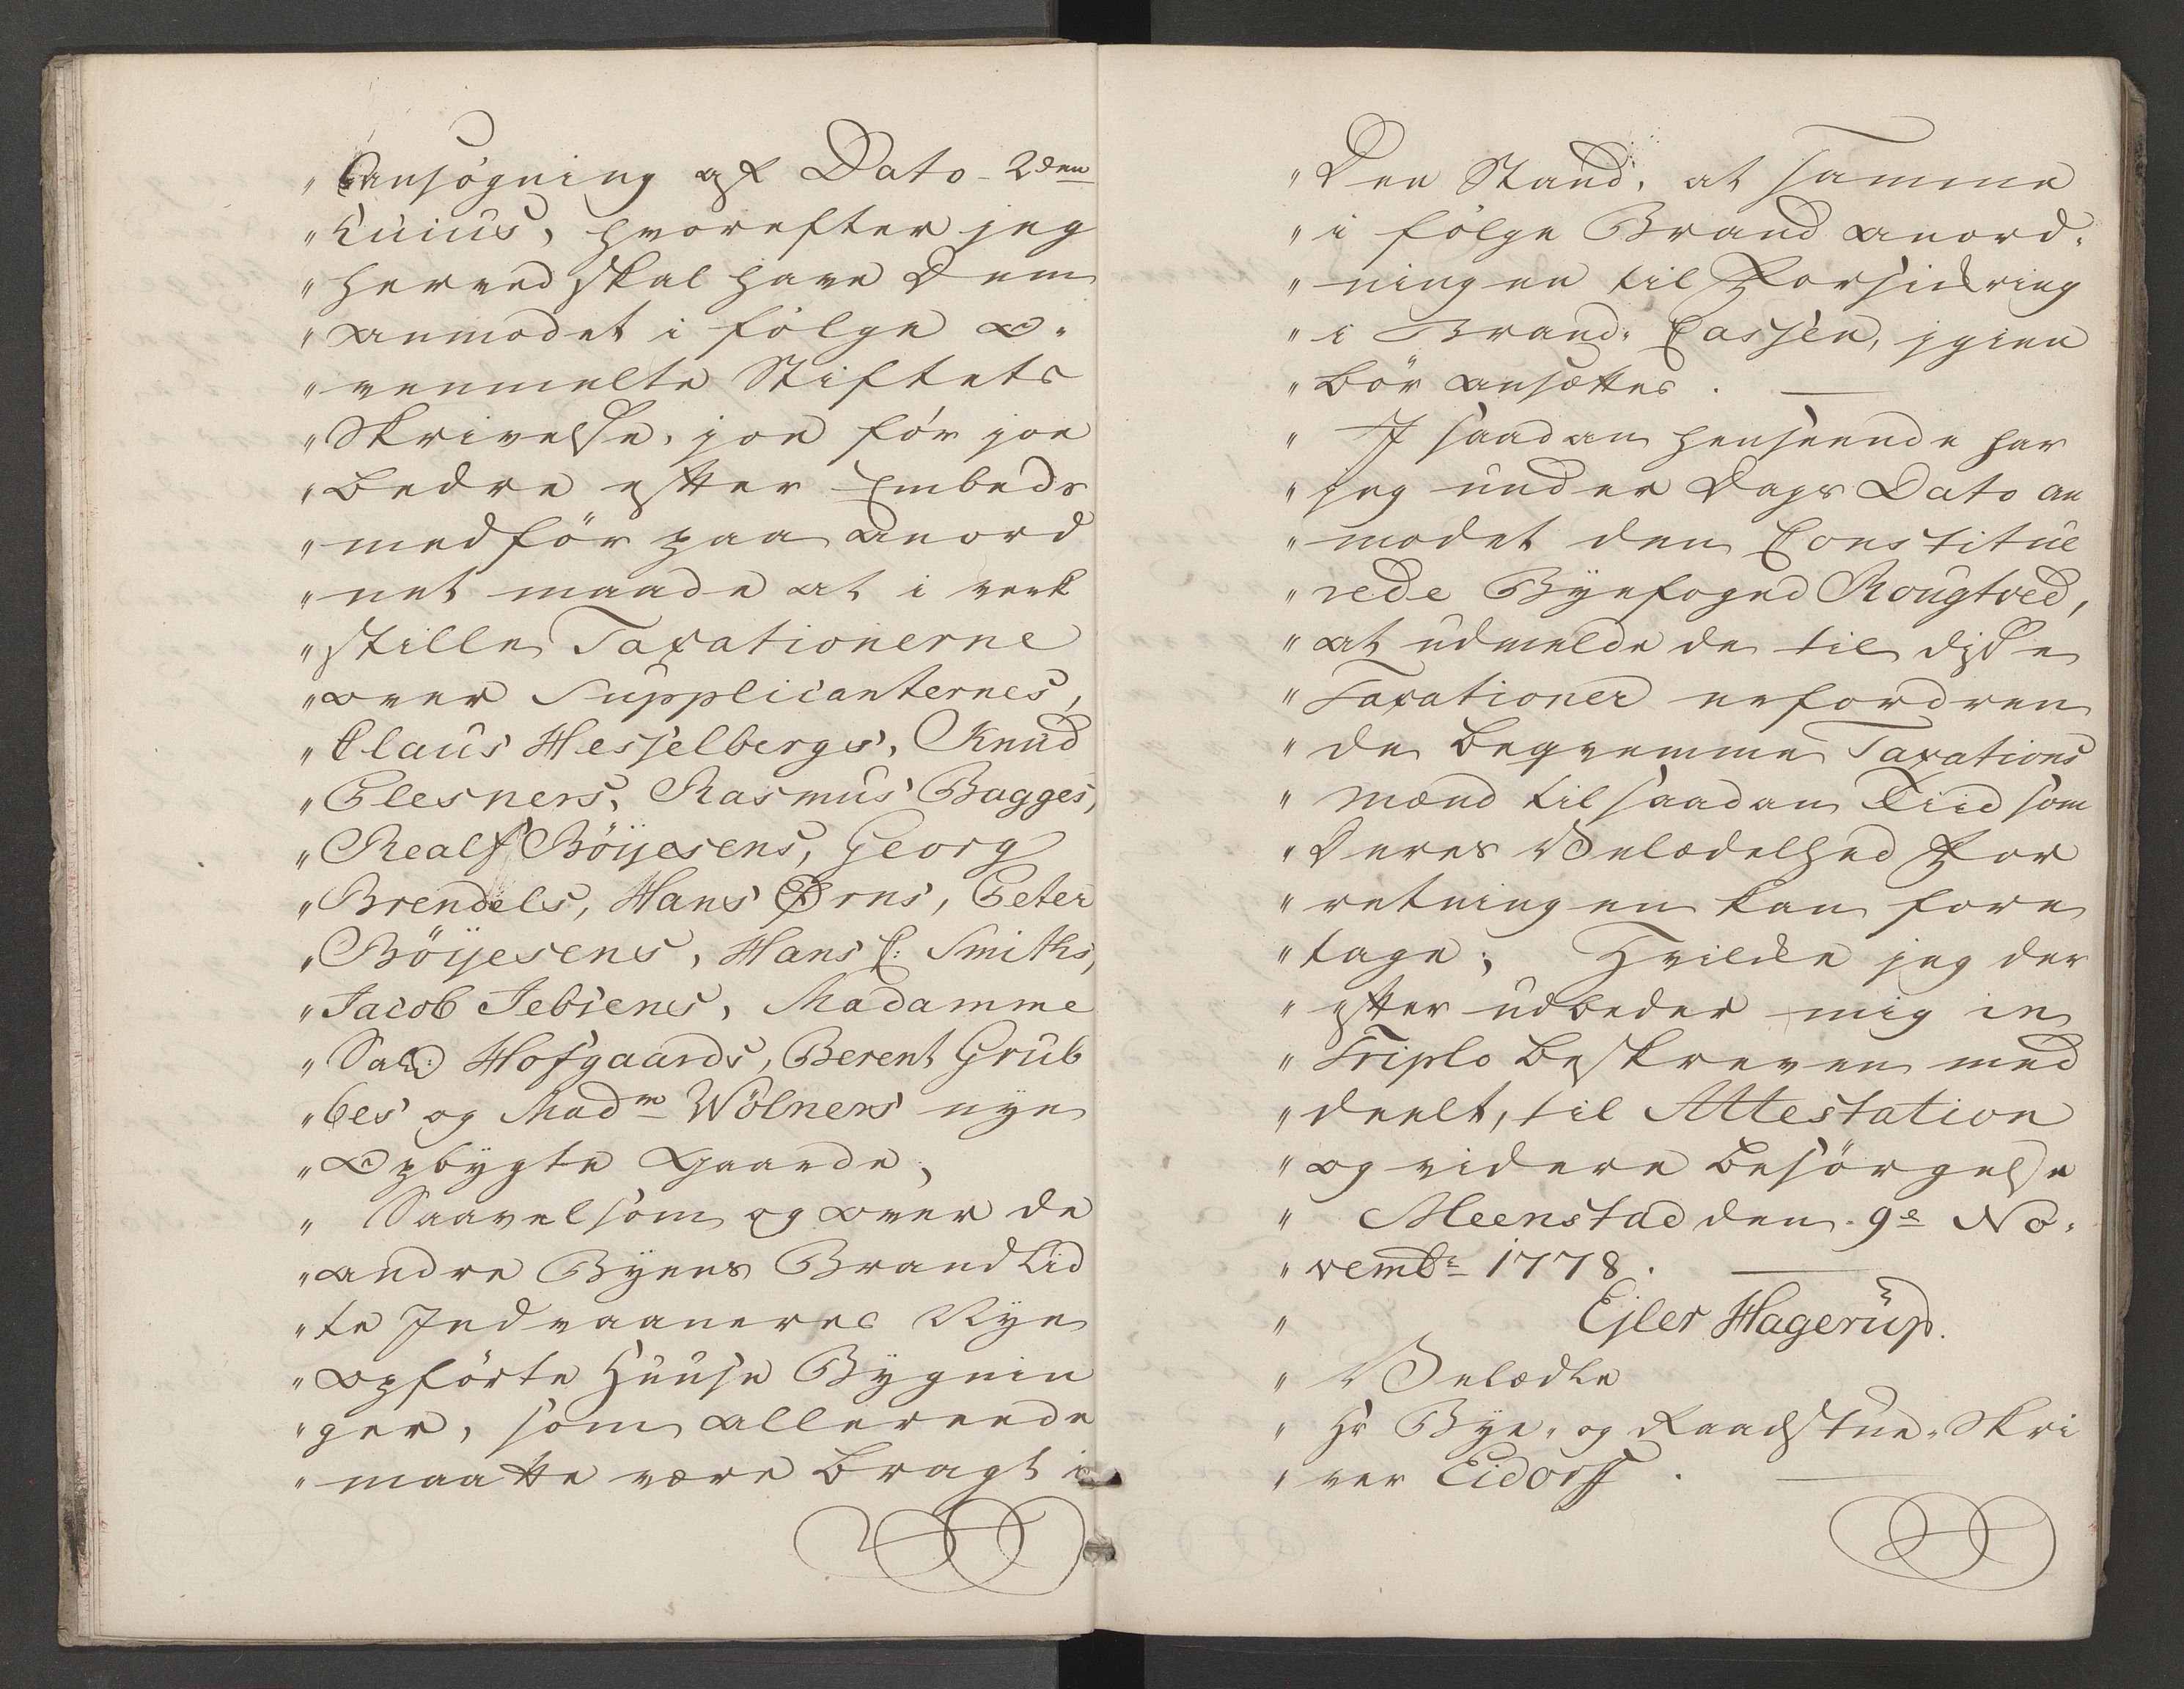 „Ansøgning af Dato 2den
„Huius, hvorefter jeg
„herved skal have Dem
„anmodet i følge o„
„venmelte Stiftets
„Skrivelse, joe før joe
„bedre efter Embeds
„medför paa anord
„net maade at i verk
„stille Taxationerne
„over Supplicanternes,
„Claus Hesselbergs, Knud
„Plesners, Rasmus Bagges,
„Realf Böÿesens, Georg
„Brendels, Hans Ørns, Peter
„Böÿesens, Hans C: Smiths,
„Jacob Jebsens, Madamme
„Sal: Hofgaards, Berent Grub
„bes og Madm Wölners nye
„Opbygte Gaarde,
„Saavelsom og over de
„andre Byens Brand lid
„te Indvaaneres Nye
„opförte Huuse Bygnin
„ger, som allereede
„maatte være bragt i
„Den Stand, at samme
„i følge Brand anord„
„ningen til Forsikring
„i Brand„Cassen, igien
„bör ansættes.
„I saadan henseende har
„jeg under Dags Dato an
„modet den Constitue
„rede Byefoged Rougtved,
„at udmelde de til diße
„Taxationer erfordren
„de beqvemme Taxations
„Mænd til saadan Tiid som
„Deres Velædelhed For
„retningen kan fore
„tage; Hvilke jeg der
„efter udbeder mig in
„Triplo beskreven med
„deelt, til Attestation
„og videre besörgelse
„Meenstad den 9e No„
„vembr 1778.
„Ejler Hagerup.
„Velædle
„Hr Bye„ og Raadstue„Skri
„ver Eidorff.